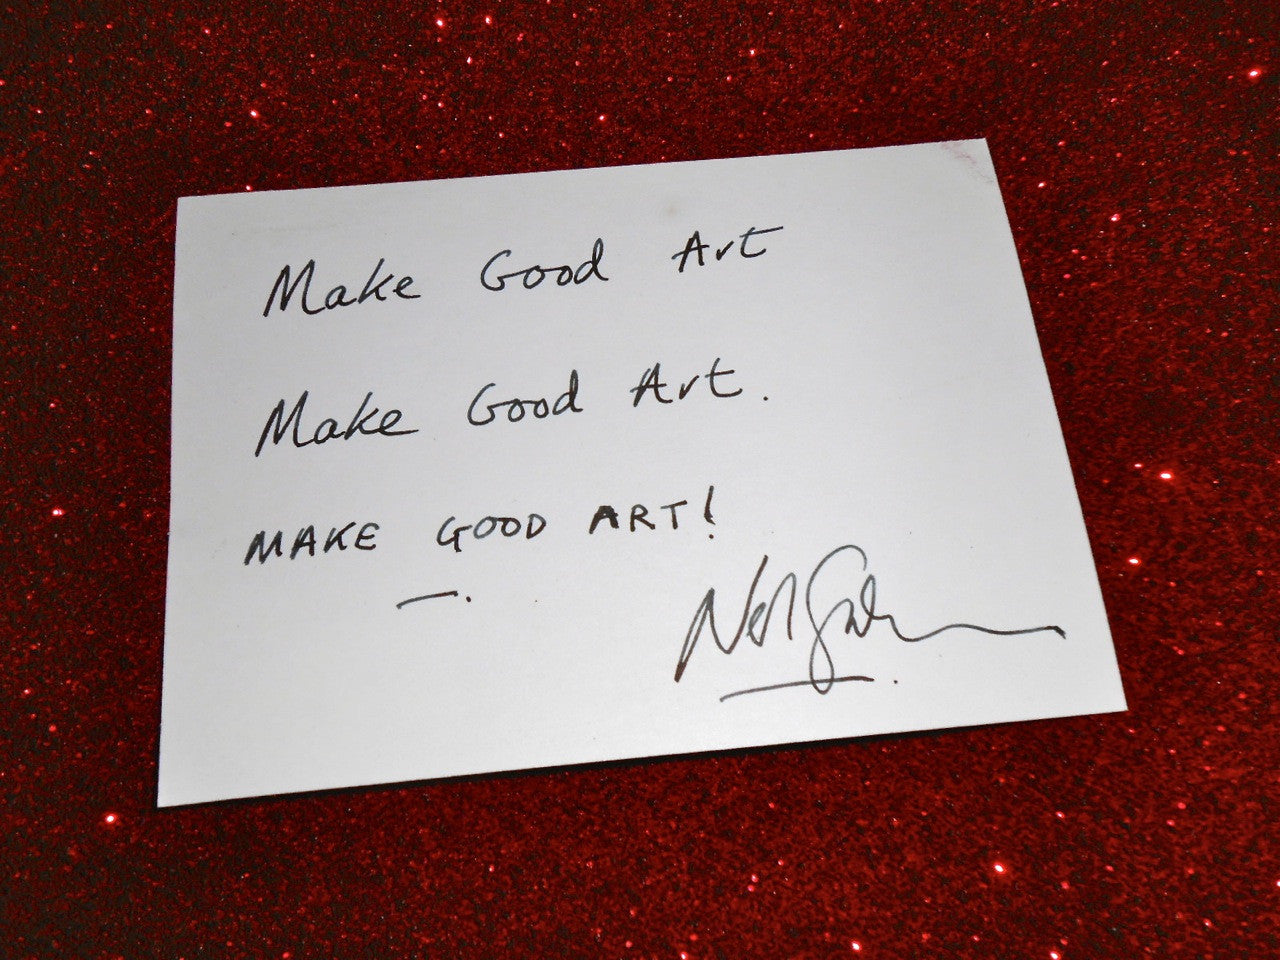 Make Good Art
Make Good Art.
MAKE GOOD ART!
Neil Gaiman